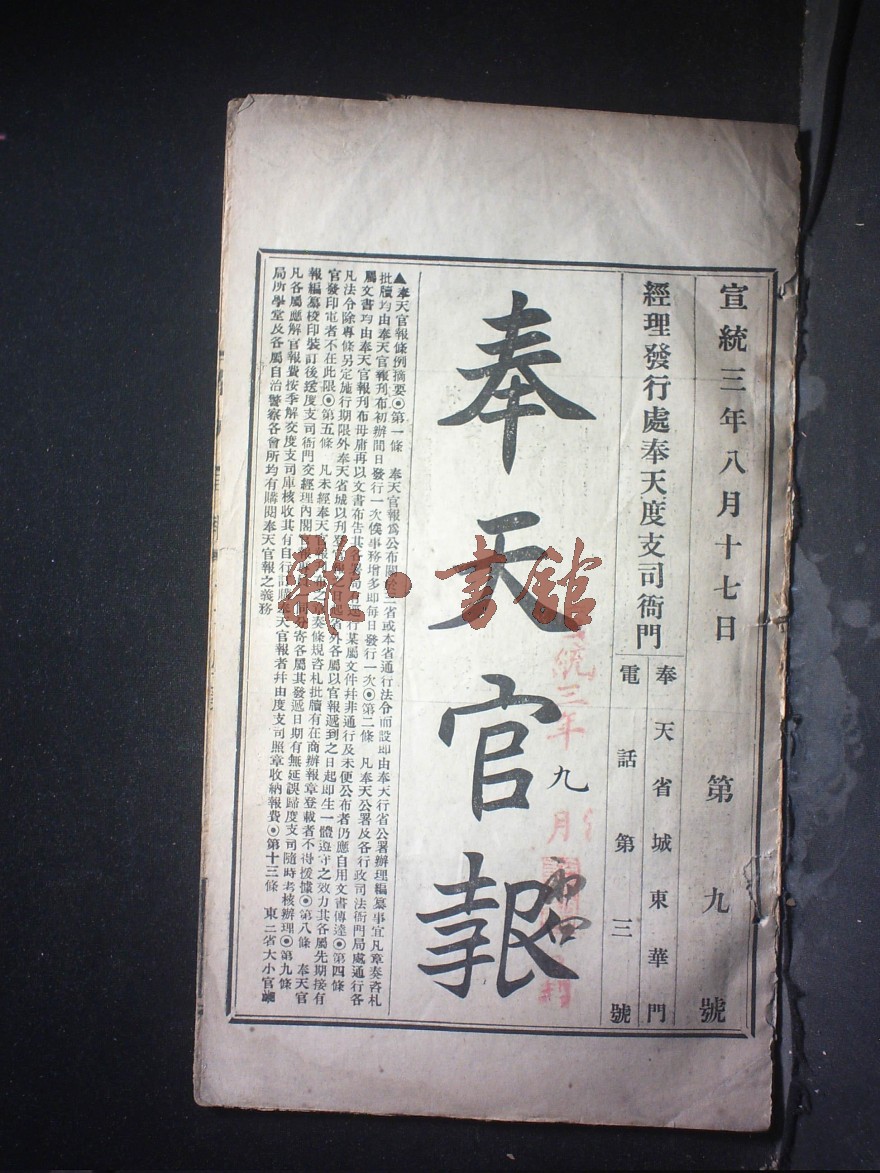 宣統三年八月十七日 第九號
經理發行處奉天度支司衙門
奉天省城東華門
電話第三號
奉天官報
統三年九月
雜·書館
▲奉天官報條例摘要◉第一條 奉天官報爲公布關於三省或本省通行法令而設即由奉天行省公署辦理編纂事宜凡章奏咨札
批牘均由奉天官報刊布初辦間日發行一次俟事務增多即每日發行一次◉第二條 凡奉天公署及各行政司法衙門局處通行各
屬文書均由奉天官報刊布毋庸再以文書布告其各局通行某屬文件幷非通行及未便公布者仍應自用文書傳達◉第四條
凡法令除專條另定施行期限外奉天省城以刊日起省外各屬以官報遞到之日起即生一體遵守之效力其各屬先期接有
官發印電者不在此限◉第五條 凡未經奉天章奏條規咨札批牘有在商辦報章登載者不得援據◉第八條 奉天官
報編纂校印裝訂後送度支司衙門交經理內閣分寄各屬其發遞日期有無延誤歸度支司隨時考核辦理◉第九條
凡各屬應解官報費按季解交度支司庫核收其有自行訂購奉天官報者幷由度支司照章收納報費◉第十三條 東三省大小官
局所學堂及各屬自治警察各會所均有購閱奉天官報之義務